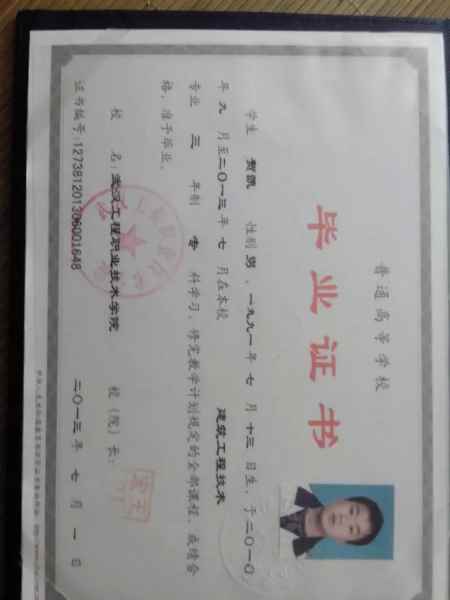 普通高等学校
毕业证书
学生 贺凯 性别 男 ，一九九一年 七 月 十三 日生，于二〇一〇
年 九 月至二〇一三年 七 月在本校 建筑工程技术
专业 三 年制 专 科学习，修完教学计划规定的全部课程，成绩合
格，准予毕业。
校 名：武汉工程职业技术学院 校（院）长：
证书编号：127381201306001648 二〇一三年 七 月 一 日